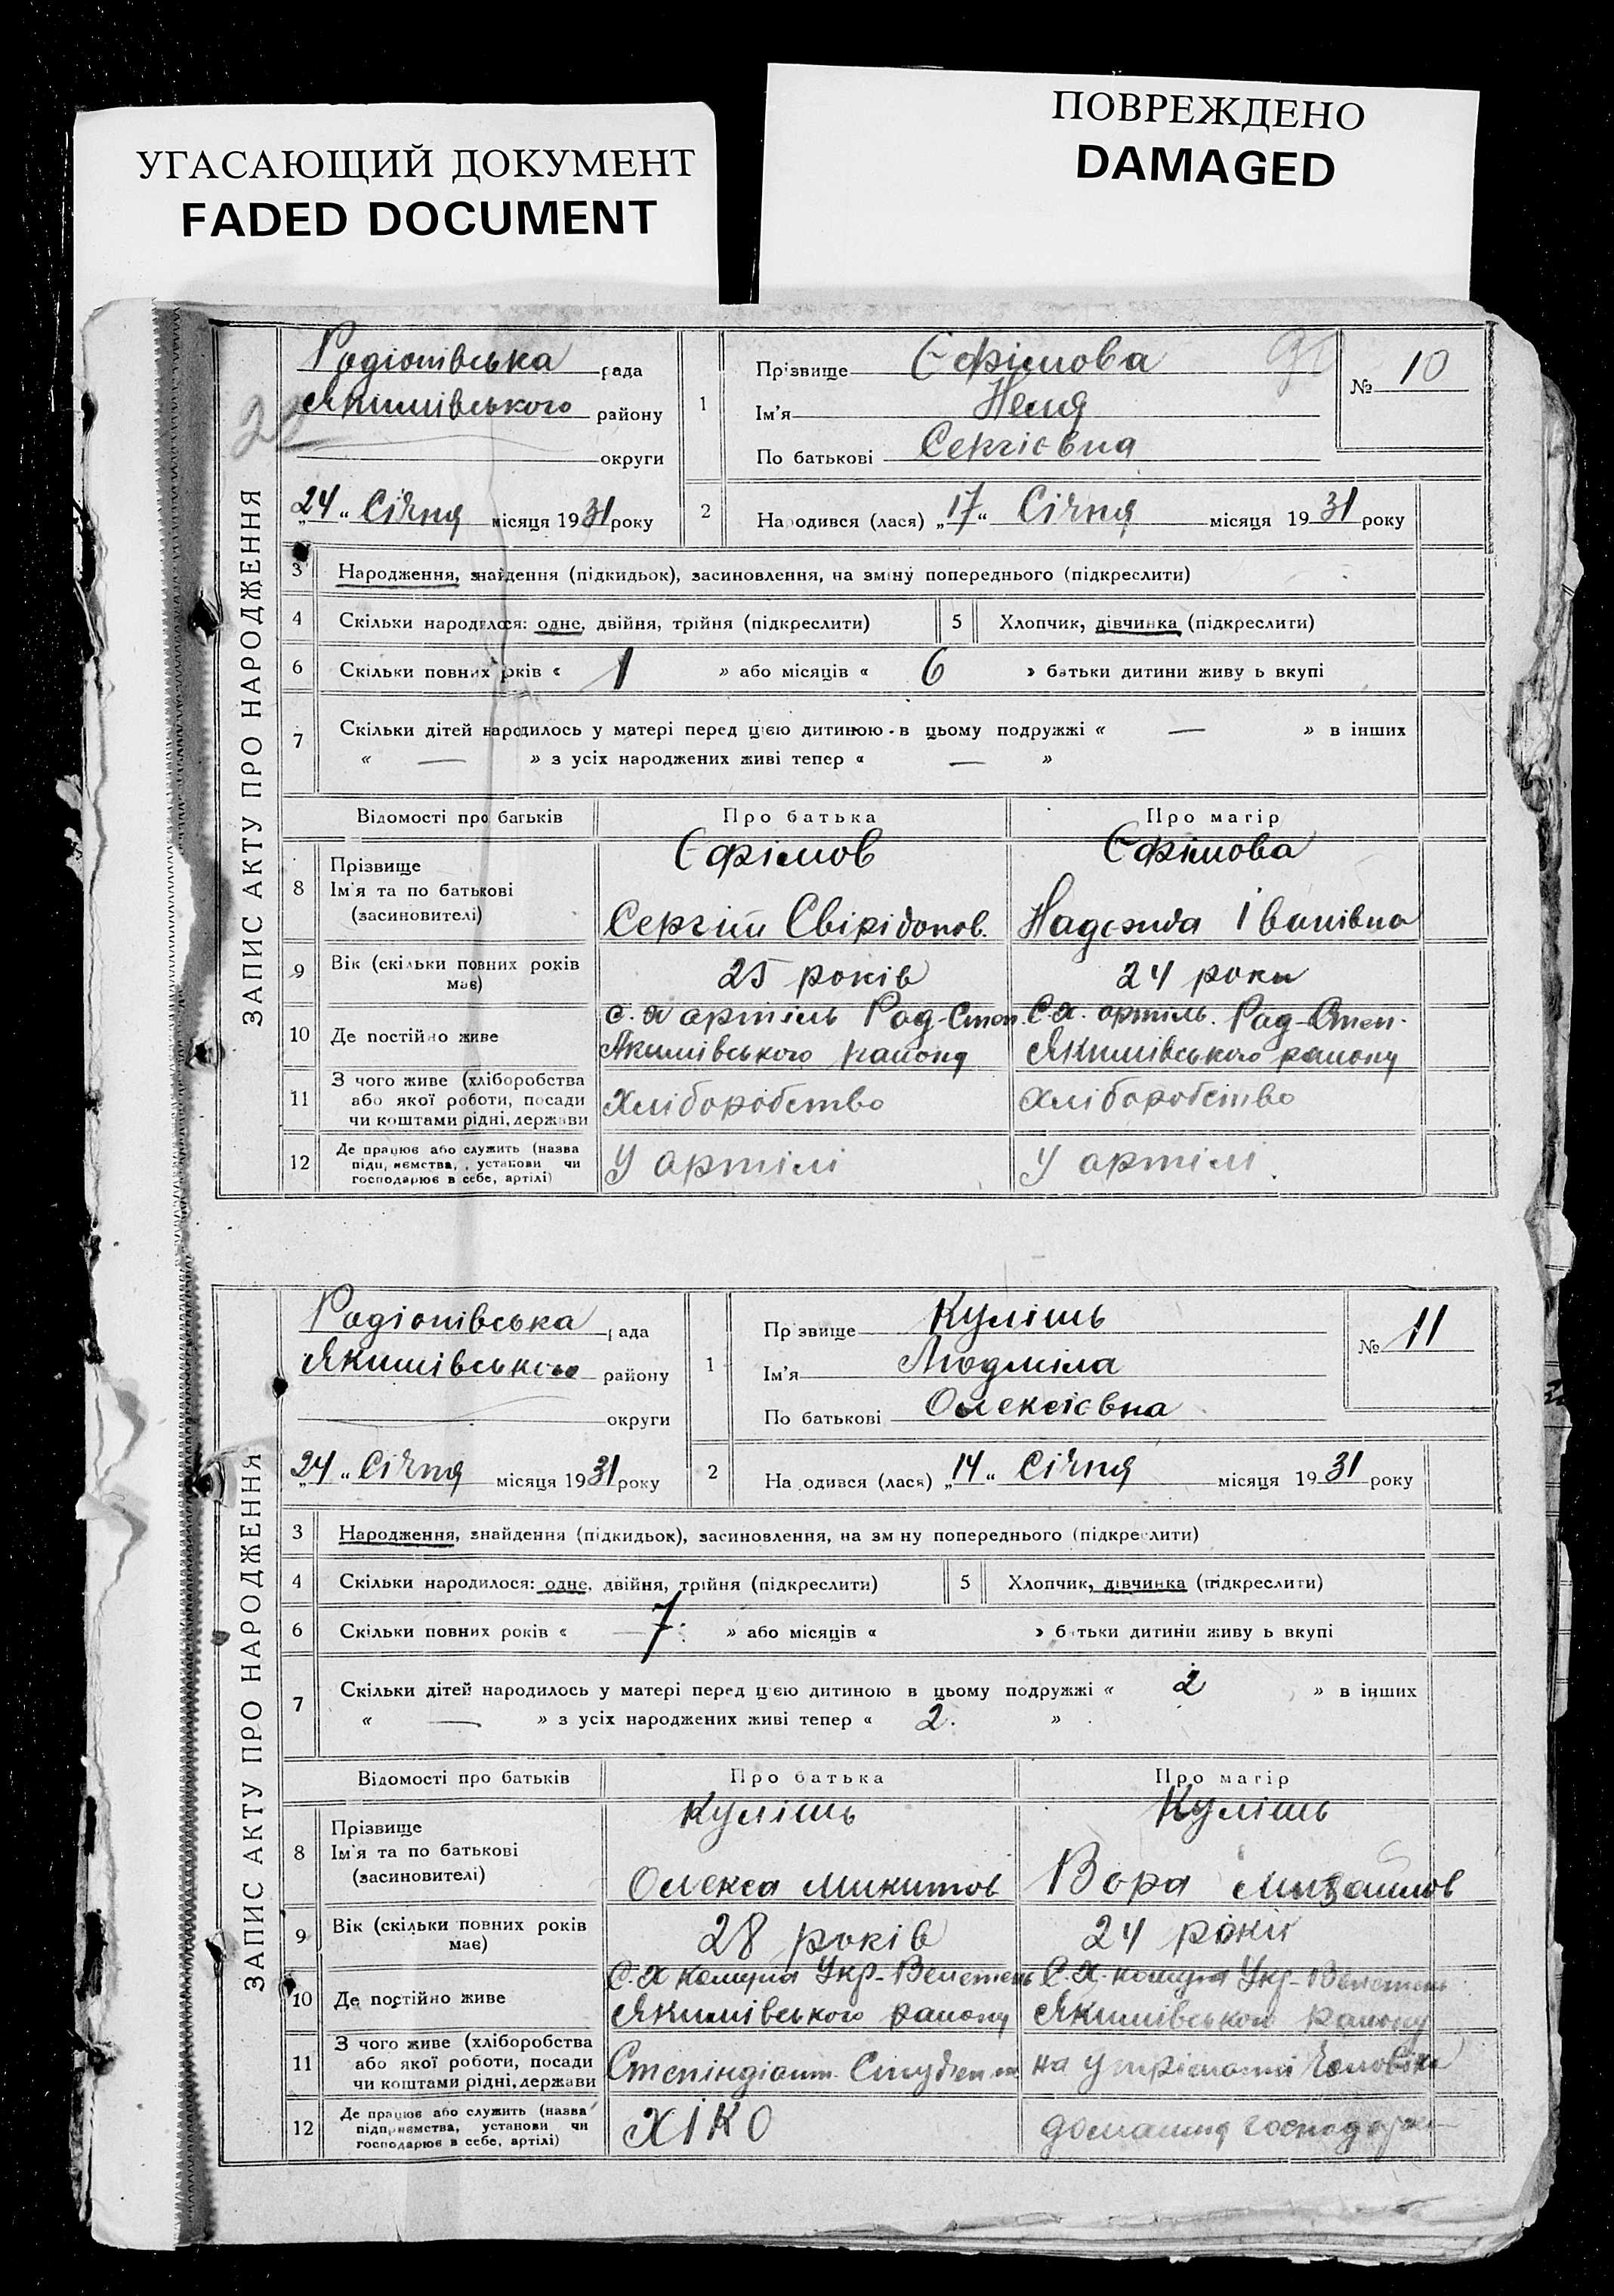 УГАСАЮЩИЙ ДОКУМЕНТ
FADED DOCUMENT
ПОВРЕЖДЕНО
DAMAGED
ЗАПИС АКТУ ПРО НАРОДЖЕННЯ
Родіонівська рада
Якимівського району
округи
„24“ Січня місяця 1931 року
1
Прізвище Єфімова
Ім'я Неля
По батькові Сергієвна
№ 10
2
Народився (лася) „17“ Січня місяця 1931 року
3 Народження, знайдення (підкидьок), засиновлення, на зміну попереднього (підкреслити)
4 Скільки народилося: одне, двійня, трійня (підкреслити) 5 Хлопчик, дівчинка (підкреслити)
6 Скільки повних років « 1 » або місяців « 6 » батьки дитини живуть вкупі
7 Скільки дітей народилось у матері перед цією дитиною в цьому подружжі « — » в інших
« — » з усіх народжених живі тепер « — »
Відомості про батьків Про батька Про матір
8 Прізвище Єфімов Єфімова
Ім'я та по батькові
(засиновителі) Сергій Свірідонов. Надежда Іванівна
9 Вік (скільки повних років має) 25 років 24 роки
10 Де постійно живе
с. х артіль Рад-Степ. С.х. артіль. Рад-Степ.
Якимівського району Якимівського району
11 З чого живе (хліборобства
або якої роботи, посади
чи коштами рідні, держави
Хліборобство Хліборобство
12 Де працює або служить (назва
підприємства, установи чи
господарює в себе, артілі)
У артілі У артілі
ЗАПИС АКТУ ПРО НАРОДЖЕННЯ
Родіонівська рада
Якимівського району
округи
„24“ Січня місяця 1931 року
1
Прізвище Кулішь
Ім'я Людміла
По батькові Олексієвна
№ 11
2
Народився (лася) „14“ Січня місяця 1931 року
3 Народження, знайдення (підкидьок), засиновлення, на зміну попереднього (підкреслити)
4 Скільки народилося: одне, двійня, трійня (підкреслити) 5 Хлопчик, дівчинка (підкреслити)
6 Скільки повних років « 7 » або місяців « » батьки дитини живуть вкупі
7 Скільки дітей народилось у матері перед цією дитиною в цьому подружжі « 2 » в інших
« — » з усіх народжених живі тепер « 2. »
Відомості про батьків Про батька Про матір
8 Прізвище Кулішь Кулішь
Ім'я та по батькові
(засиновителі) Олекса Микитов Вера Михайлов
9 Вік (скільки повних років має) 28 років 24 роки
10 Де постійно живе
С.х комуна Укр- С.х. комуна Укр-
Якимівського району Якимівського району
11 З чого живе (хліборобства
або якої роботи, посади
чи коштами рідні, держави
Студент на утріманні Чоловіка
12 Де працює або служить (назва
підприємства, установи чи
господарює в себе, артілі)
ХІКО домашня